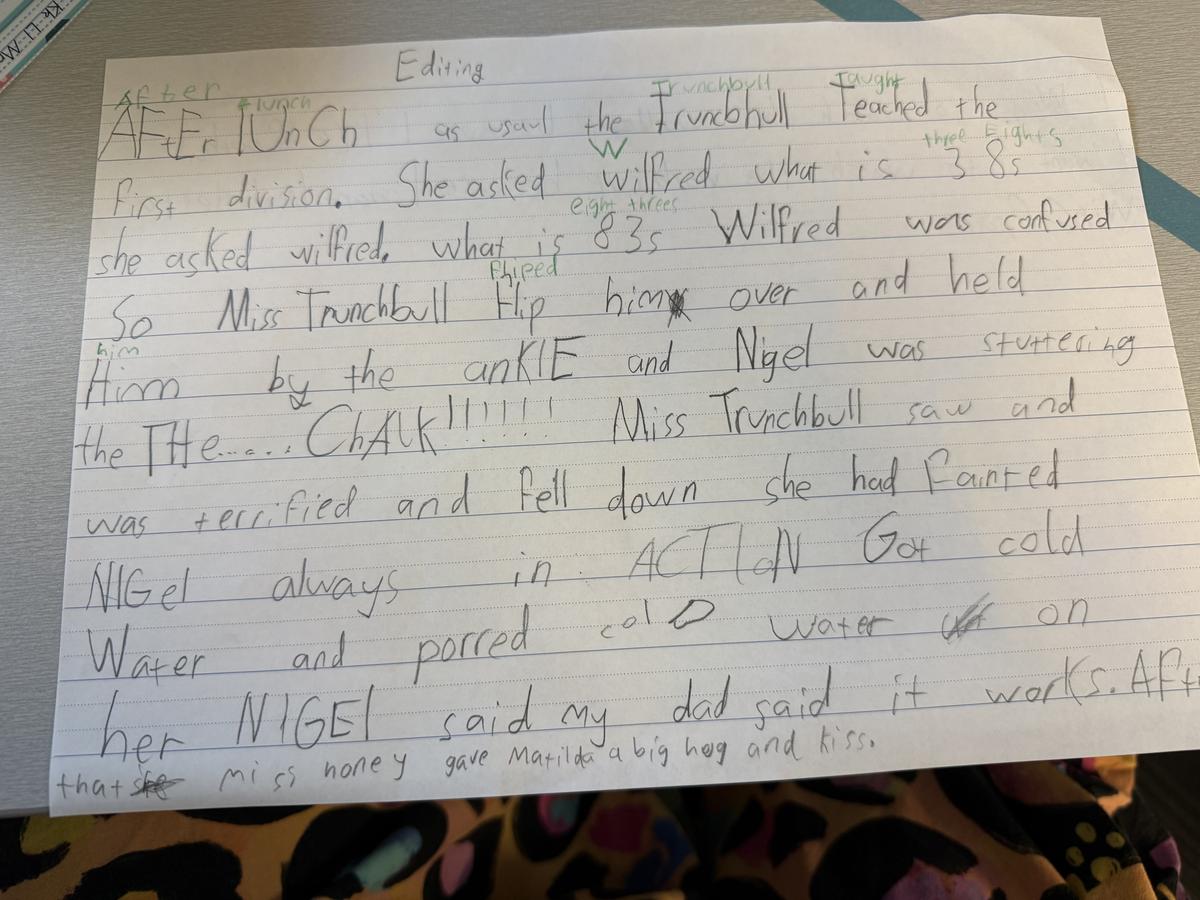 Kk Ll Mm
Editing
After lunch Trunchbull Taught
AFtEr lUnCh as usaul the Truncbhull Teached the
W three Eights
first division. She asked wilfred what is 3 8s
eight threes
she asked wilfred. what is 8 3s Wilfred was confused
fliped
So Miss Trunchbull Flip him over and held
him
Him by the anKlE and Nigel was stuttering
the THe..... ChAlK!!!!!! Miss Trunchbull saw and
was terrified and fell down she had fainted
NIGel always in ACTIoN Got cold
Water and porred colD water on
her NIGEl said my dad said it works. AFt
that miss honey gave Matilda a big hog and kiss.